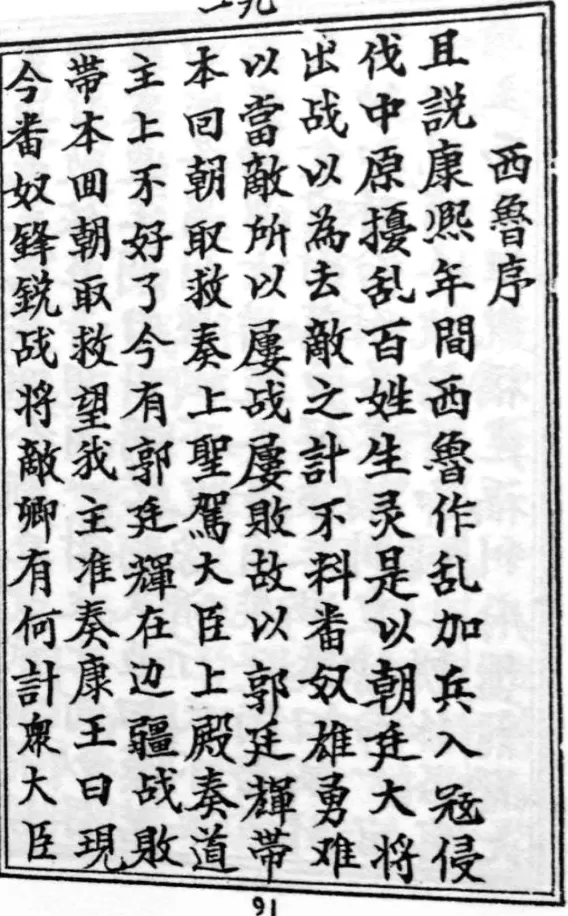 西魯序
且説康熙年間西魯作乱加兵入冦侵
伐中原擾乱百姓生灵是以朝廷大将
出战以為去敵之計不料畨奴雄勇难
以當敵所以屢战屢敗故以郭廷輝帶
本回朝取救奏上聖駕大臣上殿奏道
主上不好了今有郭廷輝在边疆战敗
帶本回朝取救望我主准奏康王曰現
今畨奴鋒銳战将敵卿有何計衆大臣
16